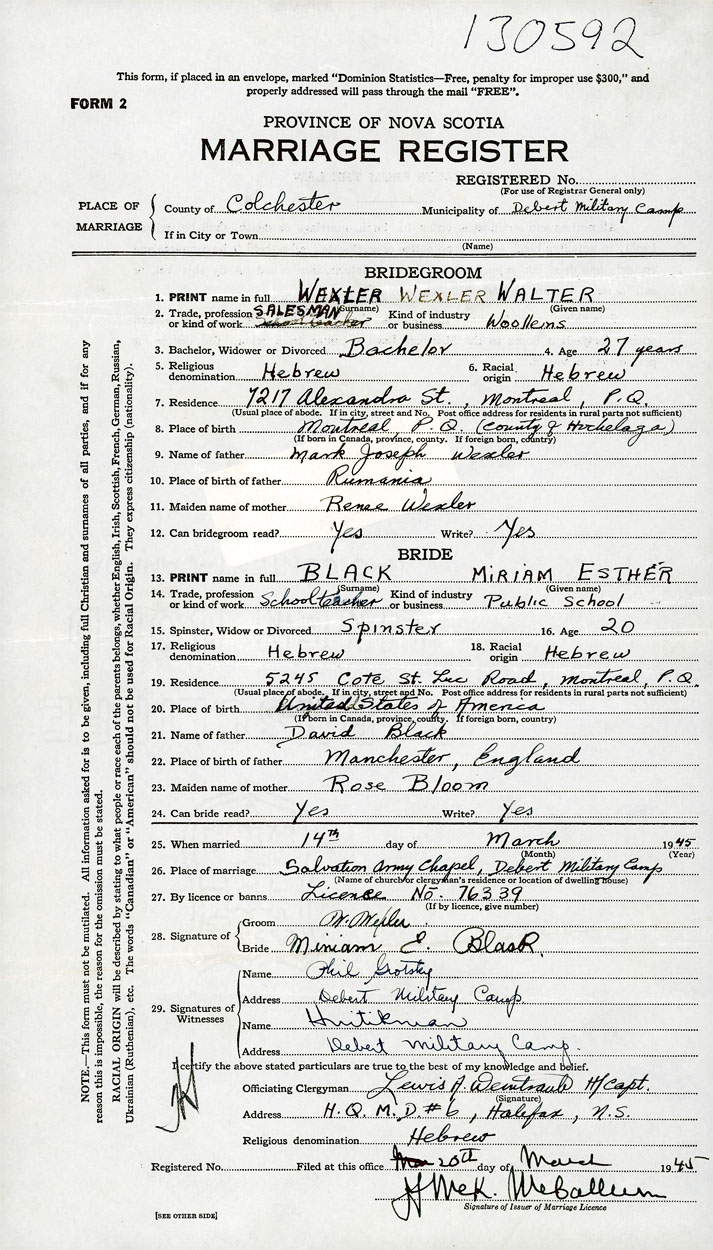 130592
This form, if placed in an envelope, marked "Dominion Statistics—Free, penalty for improper use $300," and
properly addressed will pass through the mail "FREE".
FORM 2
PROVINCE OF NOVA SCOTIA
MARRIAGE REGISTER
REGISTERED No.
(For use of Registrar General only)
PLACE OF MARRIAGE
County of Colchester Municipality of Debert Military Camp
If in City or Town
(Name)
BRIDEGROOM
1. PRINT name in full WEXLER WEXLER WALTER
(Surname) (Given name)
2. Trade, profession or kind of work SALESMAN Schoolteacher Kind of industry or business Woollens
3. Bachelor, Widower or Divorced Bachelor 4. Age 27 years
5. Religious denomination Hebrew 6. Racial origin Hebrew
7. Residence 7217 Alexandra St., Montreal, P.Q.
(Usual place of abode. If in city, street and No. Post office address for residents in rural parts not sufficient)
8. Place of birth Montreal, P.Q. (County of Hochelaga)
(If born in Canada, province, county. If foreign born, country)
9. Name of father Mark Joseph Wexler
10. Place of birth of father Rumania
11. Maiden name of mother Renee Wexler
12. Can bridegroom read? Yes Write? Yes
BRIDE
13. PRINT name in full BLACK MIRIAM ESTHER
(Surname) (Given name)
14. Trade, profession or kind of work Schoolteacher Kind of industry or business Public School
15. Spinster, Widow or Divorced Spinster 16. Age 20
17. Religious denomination Hebrew 18. Racial origin Hebrew
19. Residence 5245 Cote St. Luc Road, Montreal, P.Q.
(Usual place of abode. If in city, street and No. Post office address for residents in rural parts not sufficient)
20. Place of birth United States of America
(If born in Canada, province, county. If foreign born, country)
21. Name of father David Black
22. Place of birth of father Manchester, England
23. Maiden name of mother Rose Bloom
24. Can bride read? Yes Write? Yes
25. When married 14th day of March 1945
(Month) (Year)
26. Place of marriage Salvation Army Chapel, Debert Military Camp
(Name of church or clergyman's residence or location of dwelling house)
27. By licence or banns Licence No. 76339
(If by licence, give number)
28. Signature of
Groom W. Wexler
Bride Miriam E. Black
29. Signatures of Witnesses
Name Phil
Address Debert Military Camp
Name
Address Debert Military Camp.
I certify the above stated particulars are true to the best of my knowledge and belief.
Officiating Clergyman Lewis A. Weintraub H/Capt.
(Signature)
Address H.Q. M.D. #6, Halifax, N.S.
Religious denomination Hebrew
Registered No. Filed at this office 20th day of March 1945
Signature of Issuer of Marriage Licence
[SEE OTHER SIDE]
NOTE.—This form must not be mutilated. All information asked for is to be given, including full Christian and surnames of all parties, and if for any
reason this is impossible, the reason for the omission must be stated.
RACIAL ORIGIN will be described by stating to what people or race each of the parents belongs, whether English, Irish, Scottish, French, German, Russian,
Ukrainian (Ruthenian), etc. The words "Canadian" or "American" should not be used for Racial Origin. They express citizenship (nationality).